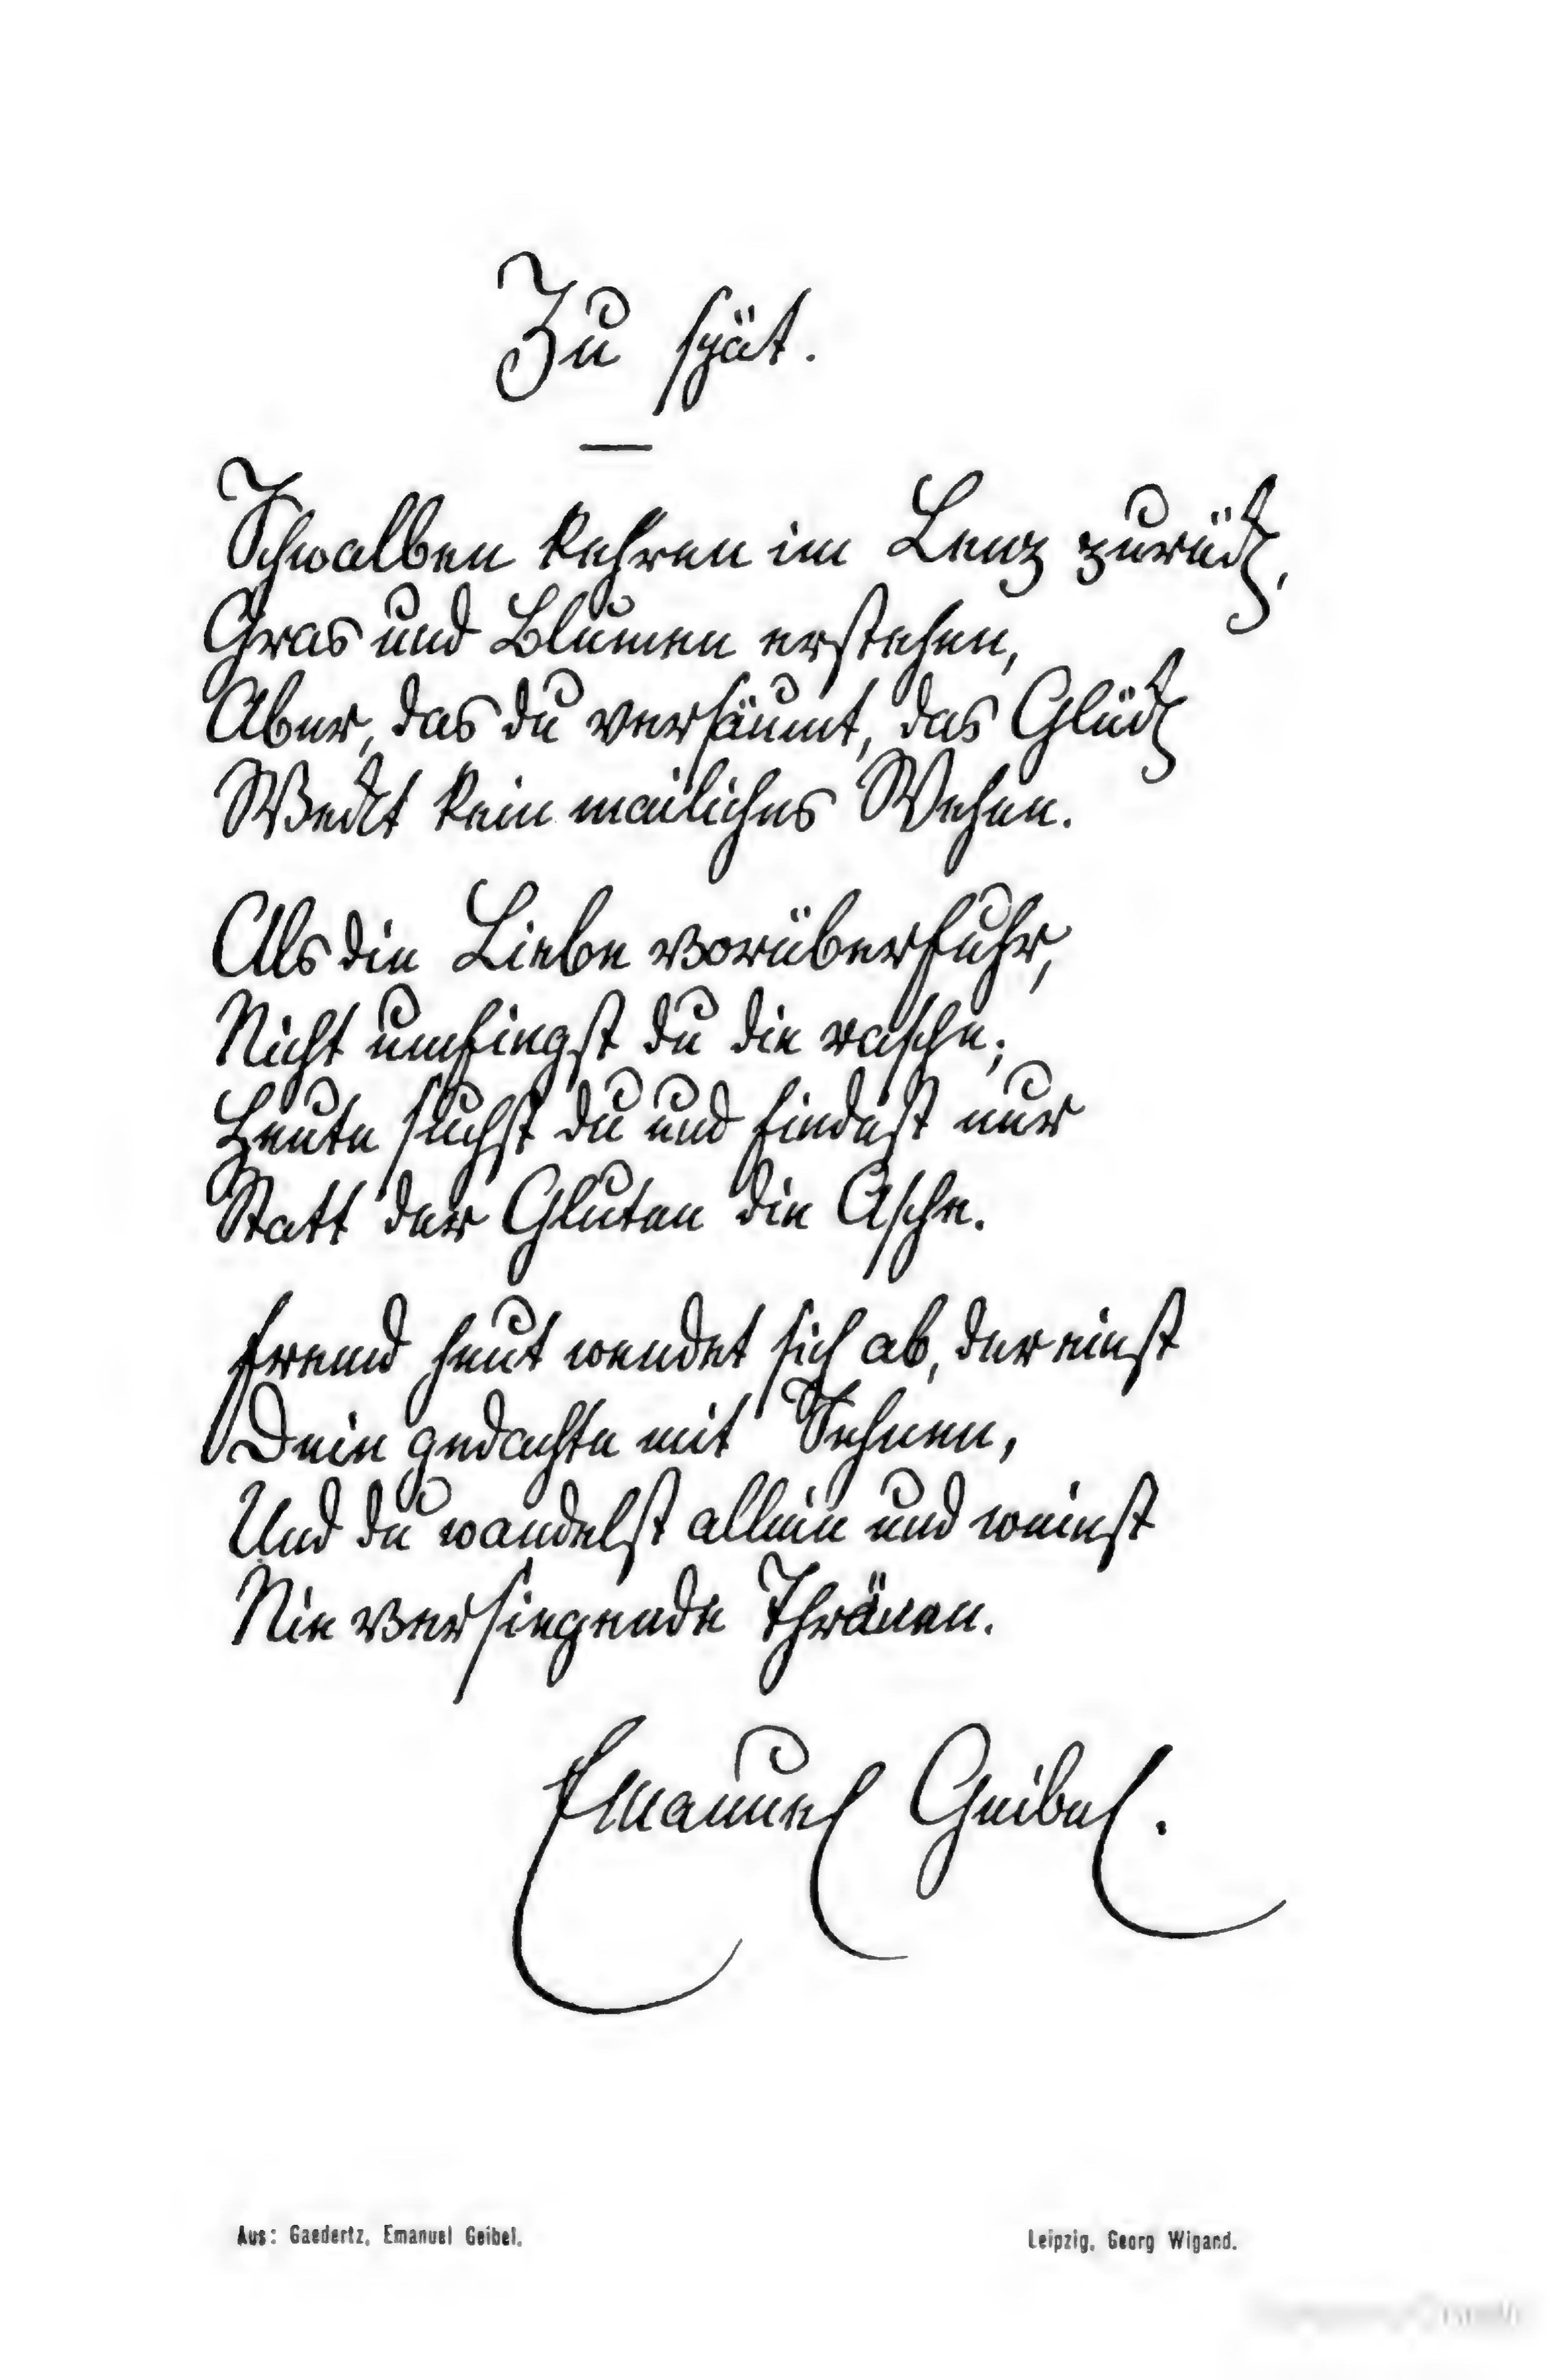 Zu spät.
Schwalben kehren im Lenz zurück,
Gras und Blumen erstehen,
Aber, das du versäumt, das Glück
Weckt kein mailiches Wehen.
Als die Liebe vorüberfuhr,
Nicht umfingst du die rasche;
Heute suchst du und findest nur
Statt der Gluten die Asche.
Fremd heut wendet sich ab, der einst
Dein gedachte mit Sehnen,
Und du wandelst allein und weinst
Nie versiegende Thränen.
Emanuel Geibel.
Aus: Gaedertz, Emanuel Geibel. Leipzig, Georg Wigand.